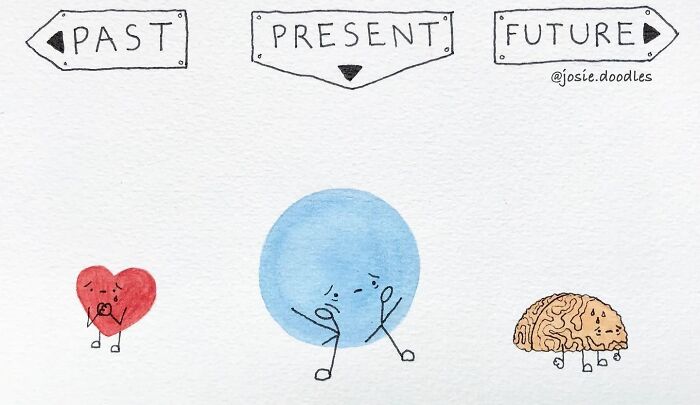 PAST
PRESENT
FUTURE
@josie.doodles